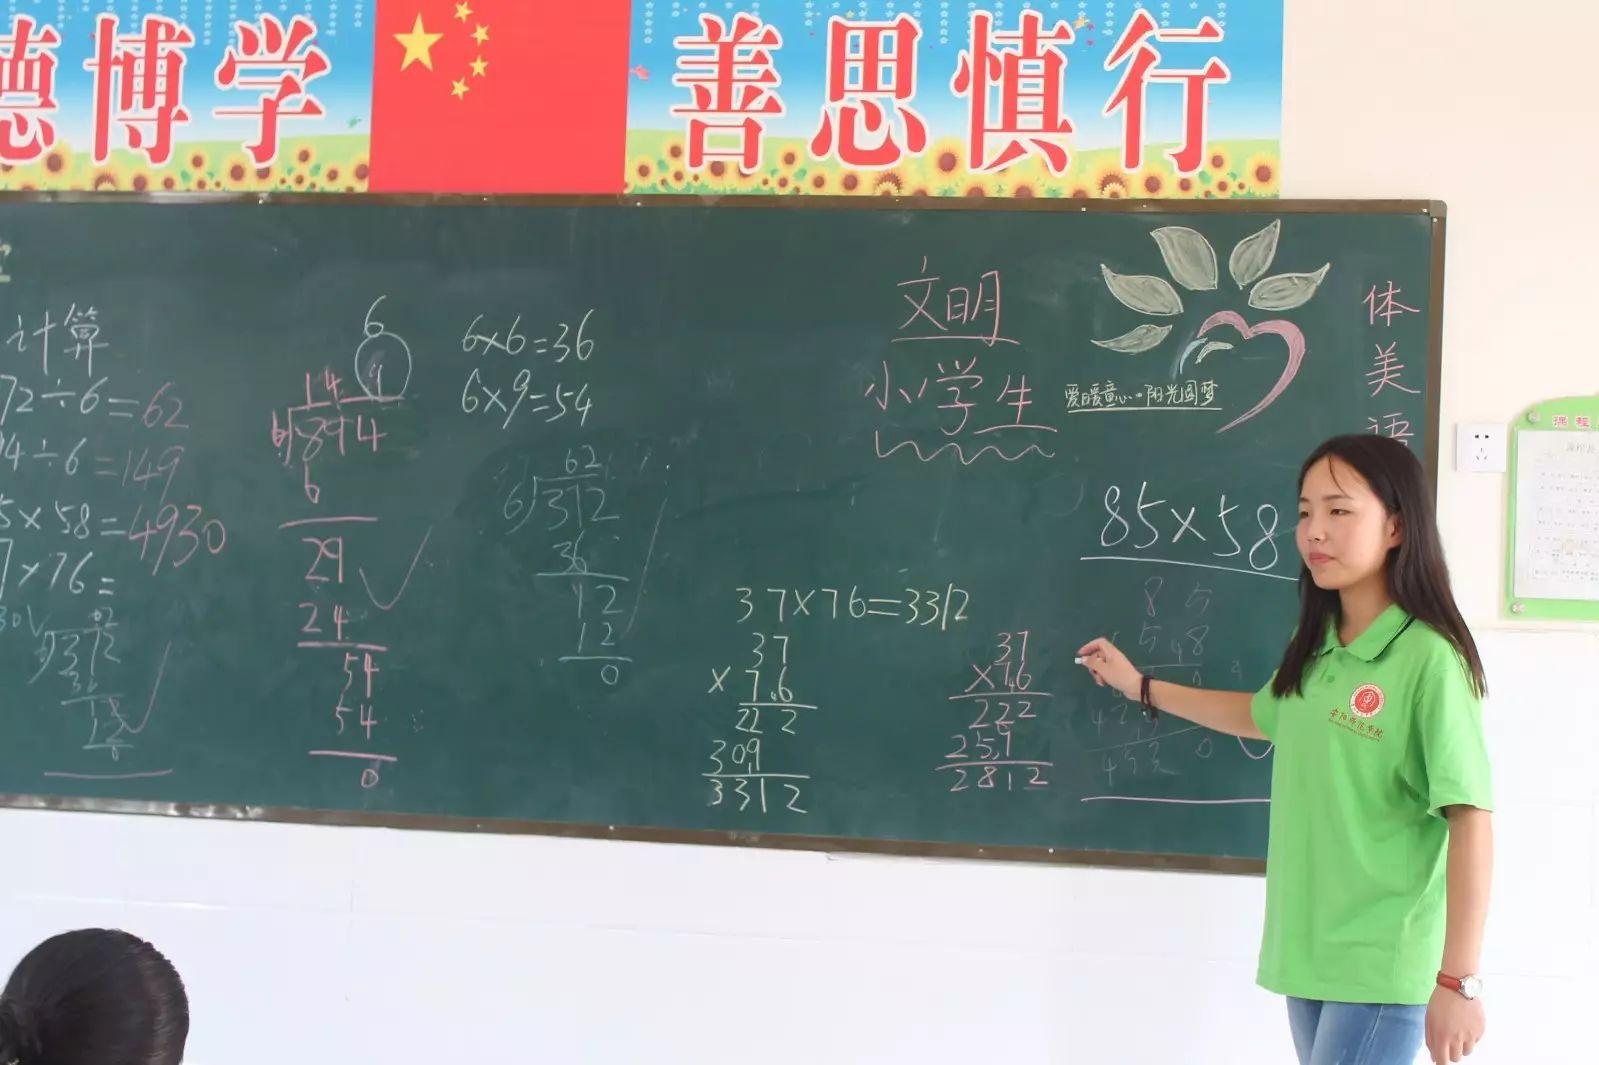 德博学
善思慎行
计算
72÷6=62
94÷6=149
5×58=4930
7×76=
6
149
6 894
6
29
24
54
54
0
6×6=36
6×9=54
62
6 312
36
12
12
0
37×76=3312
37
×76
222
309
3312
37
×76
222
259
2812
文明
小学生
爱暖童心·阳光圆梦
体美语
85×58
85
58
安阳师范学院
课程